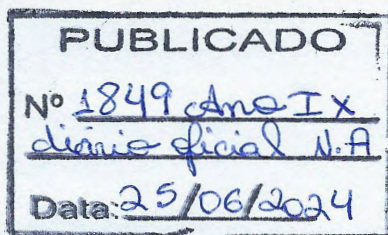 PUBLICADO
Nº 1849 Ano IX
diário oficial N.A
Data: 25/06/2024